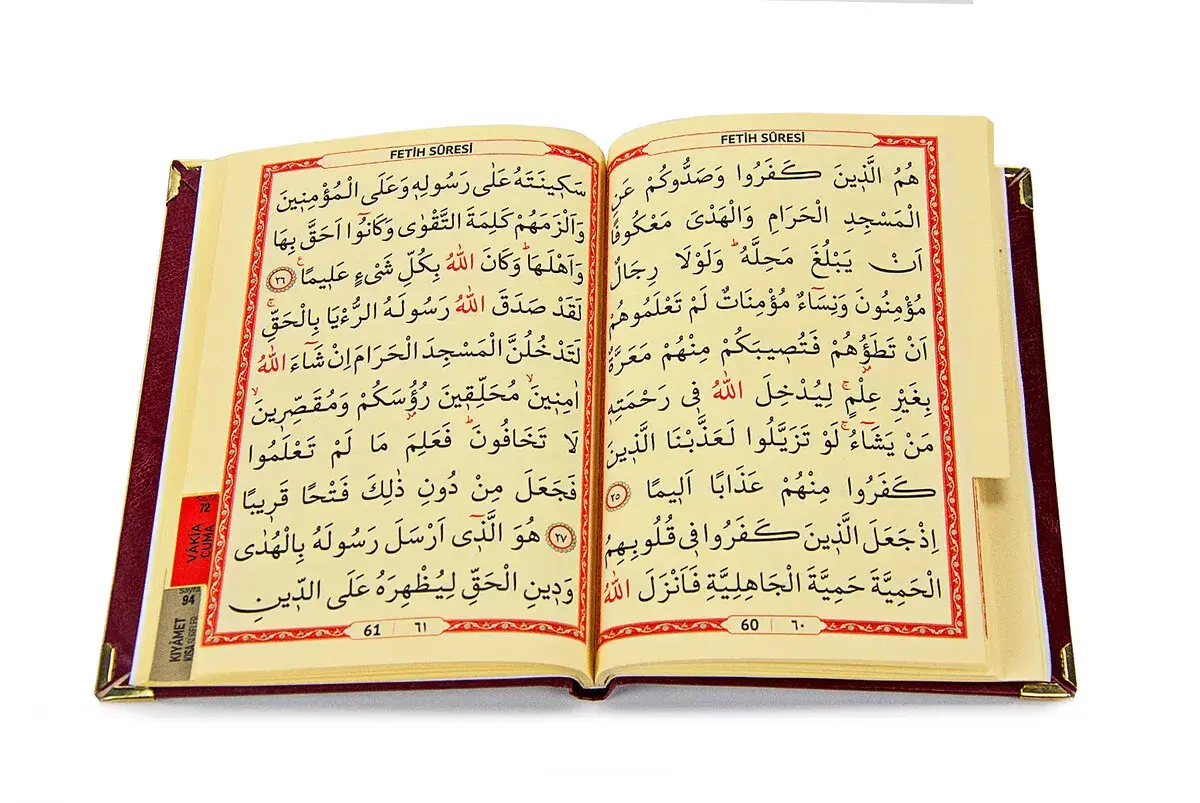 FETİH SÛRESİ
هُمُ الَّذ۪ينَ كَفَرُوا وَصَدُّوكُمْ عَنِ
الْمَسْجِدِ الْحَرَامِ وَالْهَدْىَ مَعْكُوفًا
اَنْ يَبْلُغَ مَحِلَّهُۜ وَلَوْلَا رِجَالٌ
مُؤْمِنُونَ وَنِسَٓاءٌ مُؤْمِنَاتٌ لَمْ تَعْلَمُوهُمْ
اَنْ تَطَؤُ۫هُمْ فَتُص۪يبَكُمْ مِنْهُمْ مَعَرَّةٌ
بِغَيْرِ عِلْمٍۚ لِيُدْخِلَ اللّٰهُ ف۪ى رَحْمَتِه۪
مَنْ يَشَٓاءُۚ لَوْ تَزَيَّلُوا لَعَذَّبْنَا الَّذ۪ينَ
كَفَرُوا مِنْهُمْ عَذَابًا اَل۪يمًا ٢٥
اِذْ جَعَلَ الَّذ۪ينَ كَفَرُوا ف۪ى قُلُوبِهِمُ
الْحَمِيَّةَ حَمِيَّةَ الْجَاهِلِيَّةِ فَاَنْزَلَ اللّٰهُ
60 ٦٠
FETİH SÛRESİ
سَك۪ينَتَهُ عَلٰى رَسُولِه۪ وَعَلَى الْمُؤْمِن۪ينَ
وَاَلْزَمَهُمْ كَلِمَةَ التَّقْوٰى وَكَانُٓوا اَحَقَّ بِهَا
وَاَهْلَهَاۜ وَكَانَ اللّٰهُ بِكُلِّ شَىْءٍ عَل۪يمًاۚ ٢٦
لَقَدْ صَدَقَ اللّٰهُ رَسُولَهُ الرُّءْيَا بِالْحَقِّۚ
لَتَدْخُلُنَّ الْمَسْجِدَ الْحَرَامَ اِنْ شَٓاءَ اللّٰهُ
اٰمِن۪ينَۙ مُحَلِّق۪ينَ رُؤُ۫سَكُمْ وَمُقَصِّر۪ينَۙ
لَا تَخَافُونَۜ فَعَلِمَ مَا لَمْ تَعْلَمُوا
فَجَعَلَ مِنْ دُونِ ذٰلِكَ فَتْحًا قَر۪يبًا
٢٧ هُوَ الَّذ۪ٓى اَرْسَلَ رَسُولَهُ بِالْهُدٰى
وَد۪ينِ الْحَقِّ لِيُظْهِرَهُ عَلَى الدّ۪ينِ
61 ٦١
72
VÂKIA
CUMA
Sayfa
94
KIYÂMET